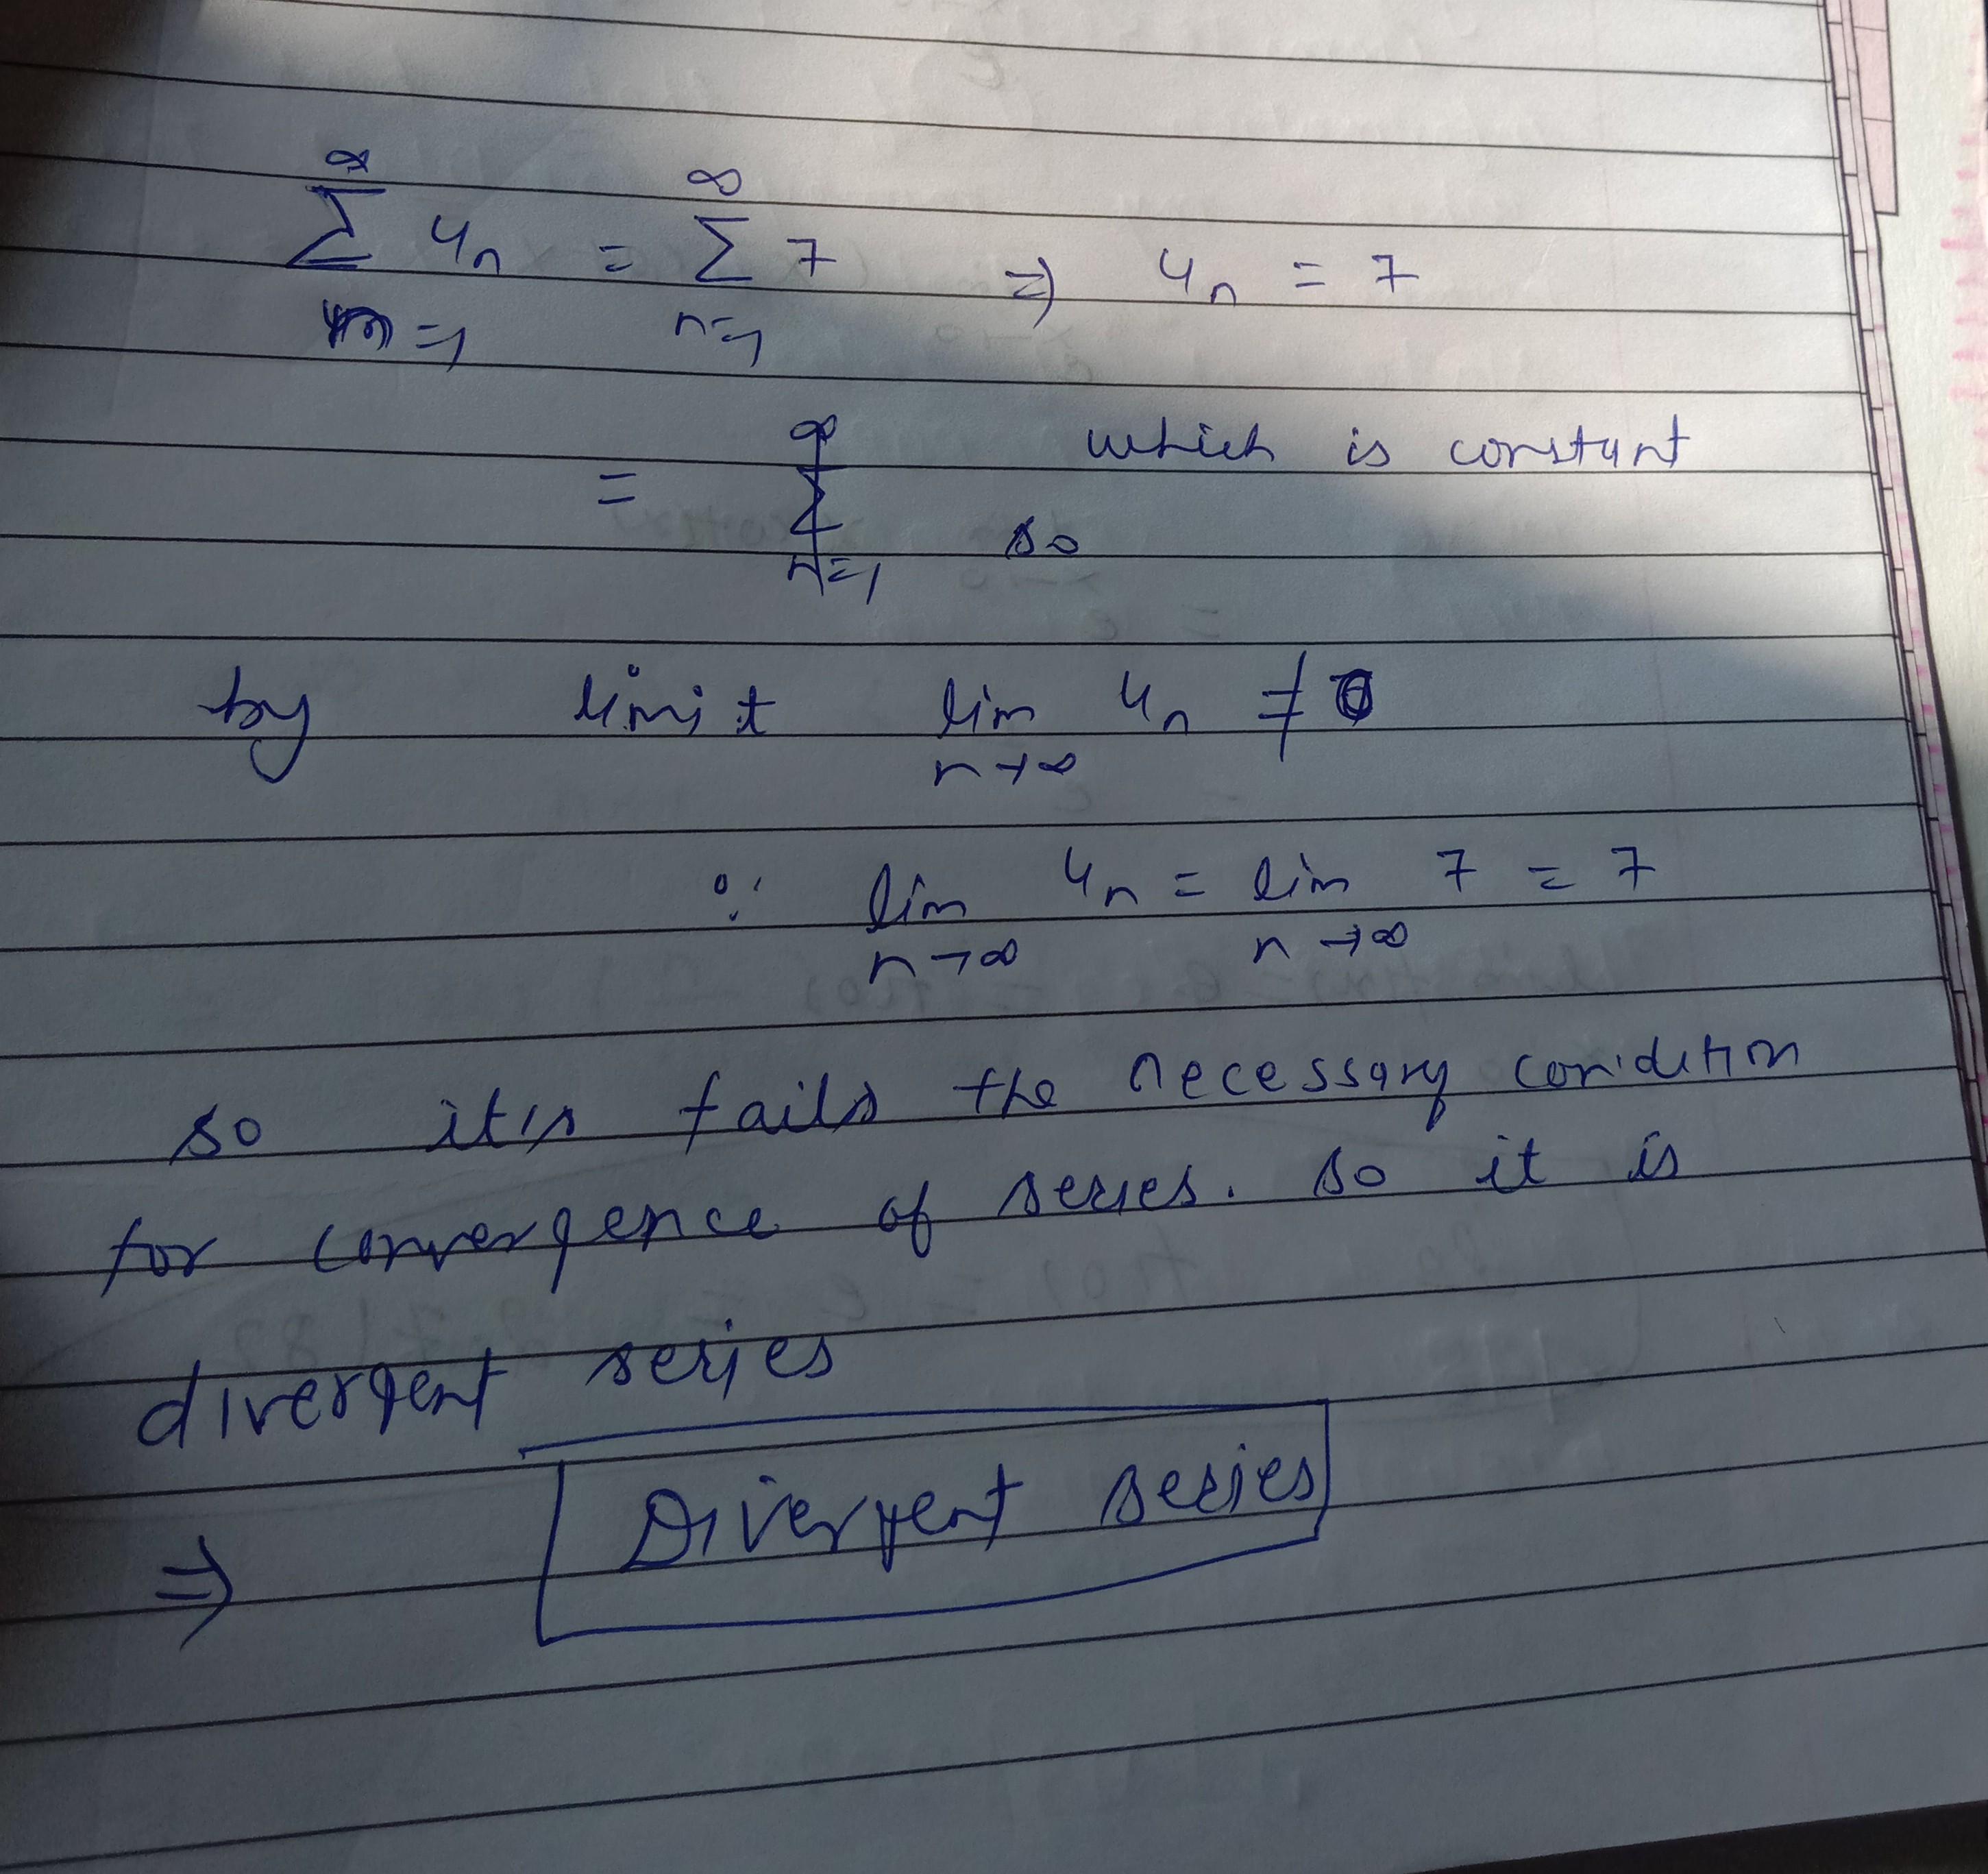 ∞ ∞
Σ un = Σ 7 ⇒ un = 7
n=1 n=1
= which is constant
so
by limit lim un ≠ 0
n→∞
∵ lim un = lim 7 = 7
n→∞ n→∞
so itis fails the necessary condition
for convergence of series. so it is
divergent series
⇒ Divergent series